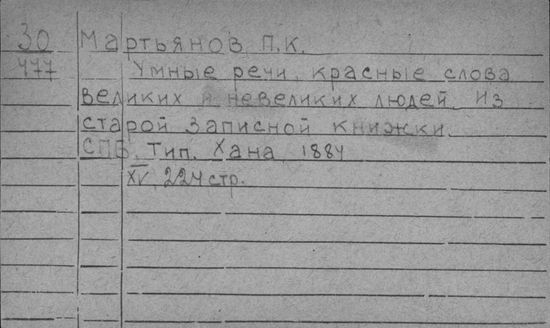 30 Мартьянов П.К.
477 Умные речи, красные слова
великих и невеликих людей. Из
старой записной книжки.
СПБ, Тип. Хана, 1884
XV, 224 стр.